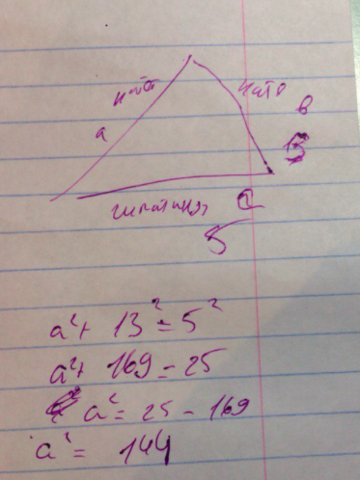 ката
като
a
в
13
гипатинуз
c
5
a² + 13² = 5²
a² + 169 = 25
a² = 25 - 169
a² = 144